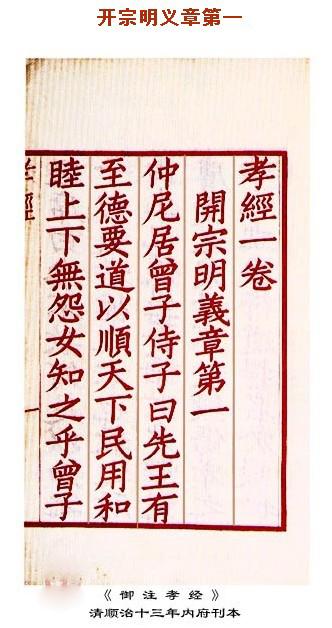 开宗明义章第一
孝經一卷
開宗明義章第一
仲尼居曾子侍子曰先王有
至德要道以順天下民用和
睦上下無怨女知之乎曾子
《御注孝经》
清顺治十三年内府刊本